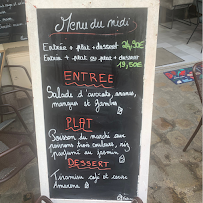 Menu du midi
Entrée + plat + dessert 24,90€
Entrée + plat ou plat + dessert
19,50€
ENTREE
Salade d'avocats, ananas,
mangues et jambon
PLAT
Poisson du marché aux
poivrons trois couleurs, riz
parfumé au jasmin
DESSERT
Tiramisu café et cerise
Amarena